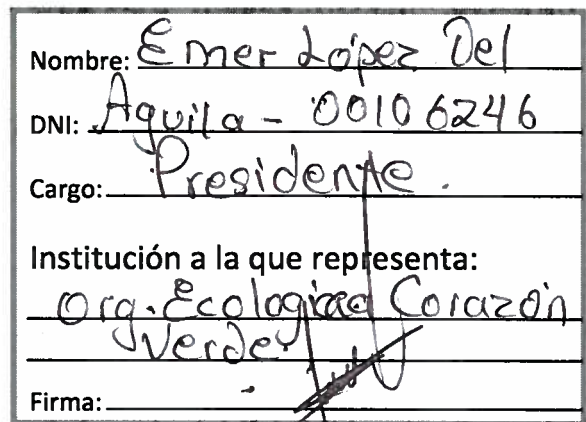 Nombre: Emer López Del
DNI: Aguila - 00106246
Cargo: Presidente.
Institución a la que representa:
Org. Ecologica Corazón
Verde
Firma: